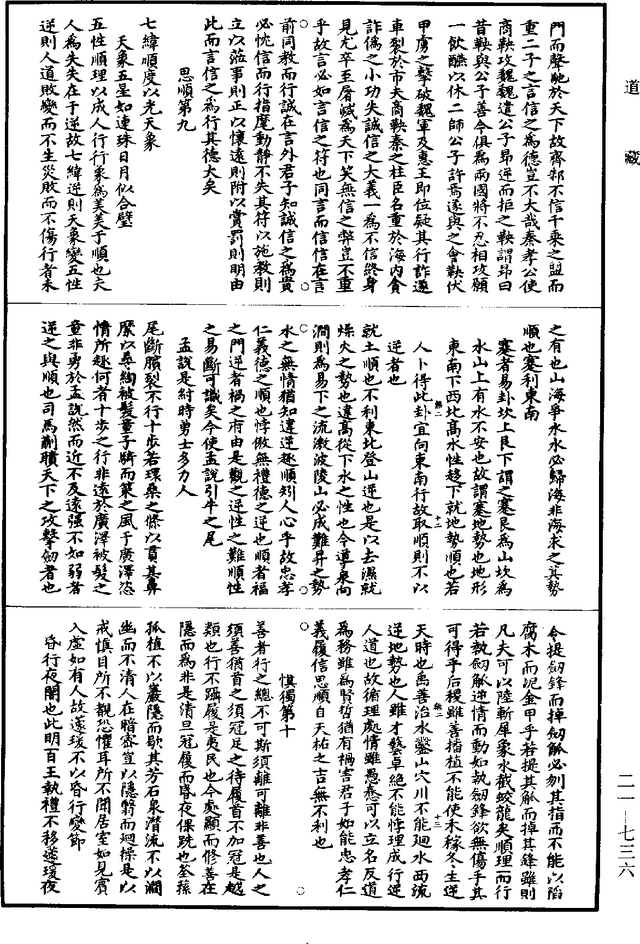 道藏
門而聲馳於天下故齊邾不信千乘之盟而
重二子之言信之為德豈不大哉秦孝公使
商鞅攻魏魏遣公子昂逆而拒之鞅謂昂曰
昔鞅與公子善今俱為兩國將不忍相攻願
一飲醼以休二師公子許焉遂與之會鞅伏
甲虜之擊破魏軍及惠王即位疑其行詐遂
車裂於市夫商鞅秦之柱臣名重於海内貪
詐偽之小功失誠信之大義一為不信終身
見尤卒至屠滅為天下笑無信之弊豈不重
乎故言必如言信之符也同言而信信在言
前同教而行誠在言外君子知誠信之為貴
必忱信而行指麾動靜不失其符以施教則
立以蒞事則正以懷遠則附以賞罰則明由
此而言信之為行其德大矣
思順第九
七緯順度以光天象
天象五星如連珠日月似合璧
五性順理以成人行行象為美美于順也夫
人為失失在于逆故七緯逆則天象變五性
逆則人道敗變而不生災敗而不傷行者未
之有也山海爭水水必歸海非海求之其勢
順也蹇利東南
蹇者易卦坎上艮下謂之蹇艮為山坎為
水山上有水不安也故謂蹇地勢也地形
東南下西北高水性趨下就地勢順也若
人卜得此卦宜向東南行故取順則不以
逆者也
就土順也不利東北登山逆也是以去濕就
燥火之勢也違高從下水之性也今導泉向
澗則為易下之流激波陵山必成難昇之勢
水之無情猶知違逆趣順矧人心乎故忠孝
仁義德之順也悖傲無禮德之逆也順者福
之門逆者禍之府由是觀之逆性之難順性
之易斷可識矣今使孟說引牛之尾
孟說是紂時勇士多力人
尾斷臏裂不行十步若環桑之條以貫其鼻
縻以尋綯被髮童子騎而策之風于廣澤恣
情所趣何者十步之行非遠於廣澤被髮之
童非勇於孟說然而近不及遠强不如弱者
逆之與順也司馬蒯聵天下之攻擊劒者也
令提劒鋒而掉劒觚必刎其指而不能以陷
腐木而況金甲乎若提其觚而掉其鋒雖則
凡夫可以陸斬犀象水截蛟龍矣順理而行
若執劒觚逆情而動如執劒鋒欲無傷手其
可得乎后稷雖善播植不能使禾稼冬生逆
天時也禹善治水鑿山穴川不能迴水西流
逆地勢也人雖才藝卓絶不能悖理成行逆
人道也故循理處情雖愚惷可以立名反道
為務雖為賢哲猶有禍害君子如能忠孝仁
義履信思順自天祐之吉無不利也
慎獨第十
善者行之總不可斯須離可離非善也人之
須善猶首之須冠足之待履首不加冠是越
類也行不躡履是夷民也今處顯而修善在
隱而為非是清旦冠履而昏夜倮跣也荃蓀
孤植不以巖隱而歇其芳石泉潛流不以澗
幽而不清人在暗密豈以隱翳而迴操是以
戒慎目所不覩恐懼耳所不聞居室如見賓
入虛如有人故蘧瑗不以昏行變節
昏行夜闇也此明百王執禮不移蘧瑗夜
二一—七三六